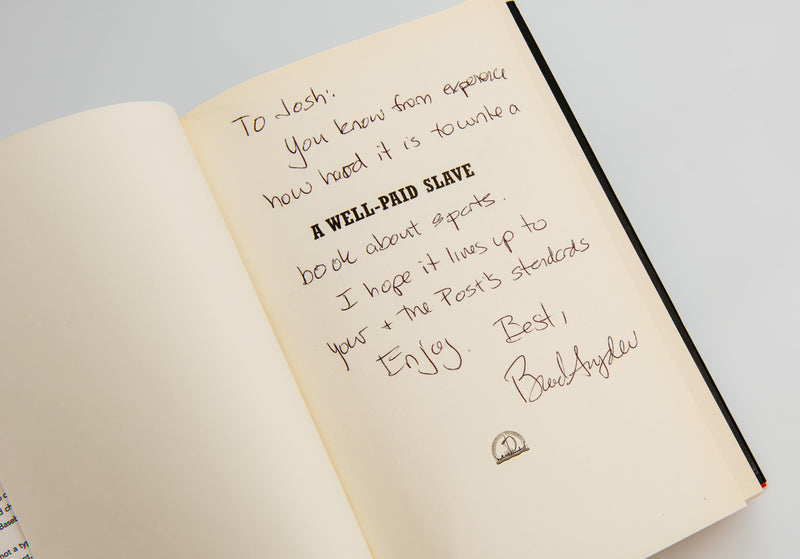 To Josh:
You know from experience
how hard it is to write a
A WELL-PAID SLAVE
book about sports.
I hope it lives up to
your + the Post's standards
Enjoy. Best,
Brad Snyder